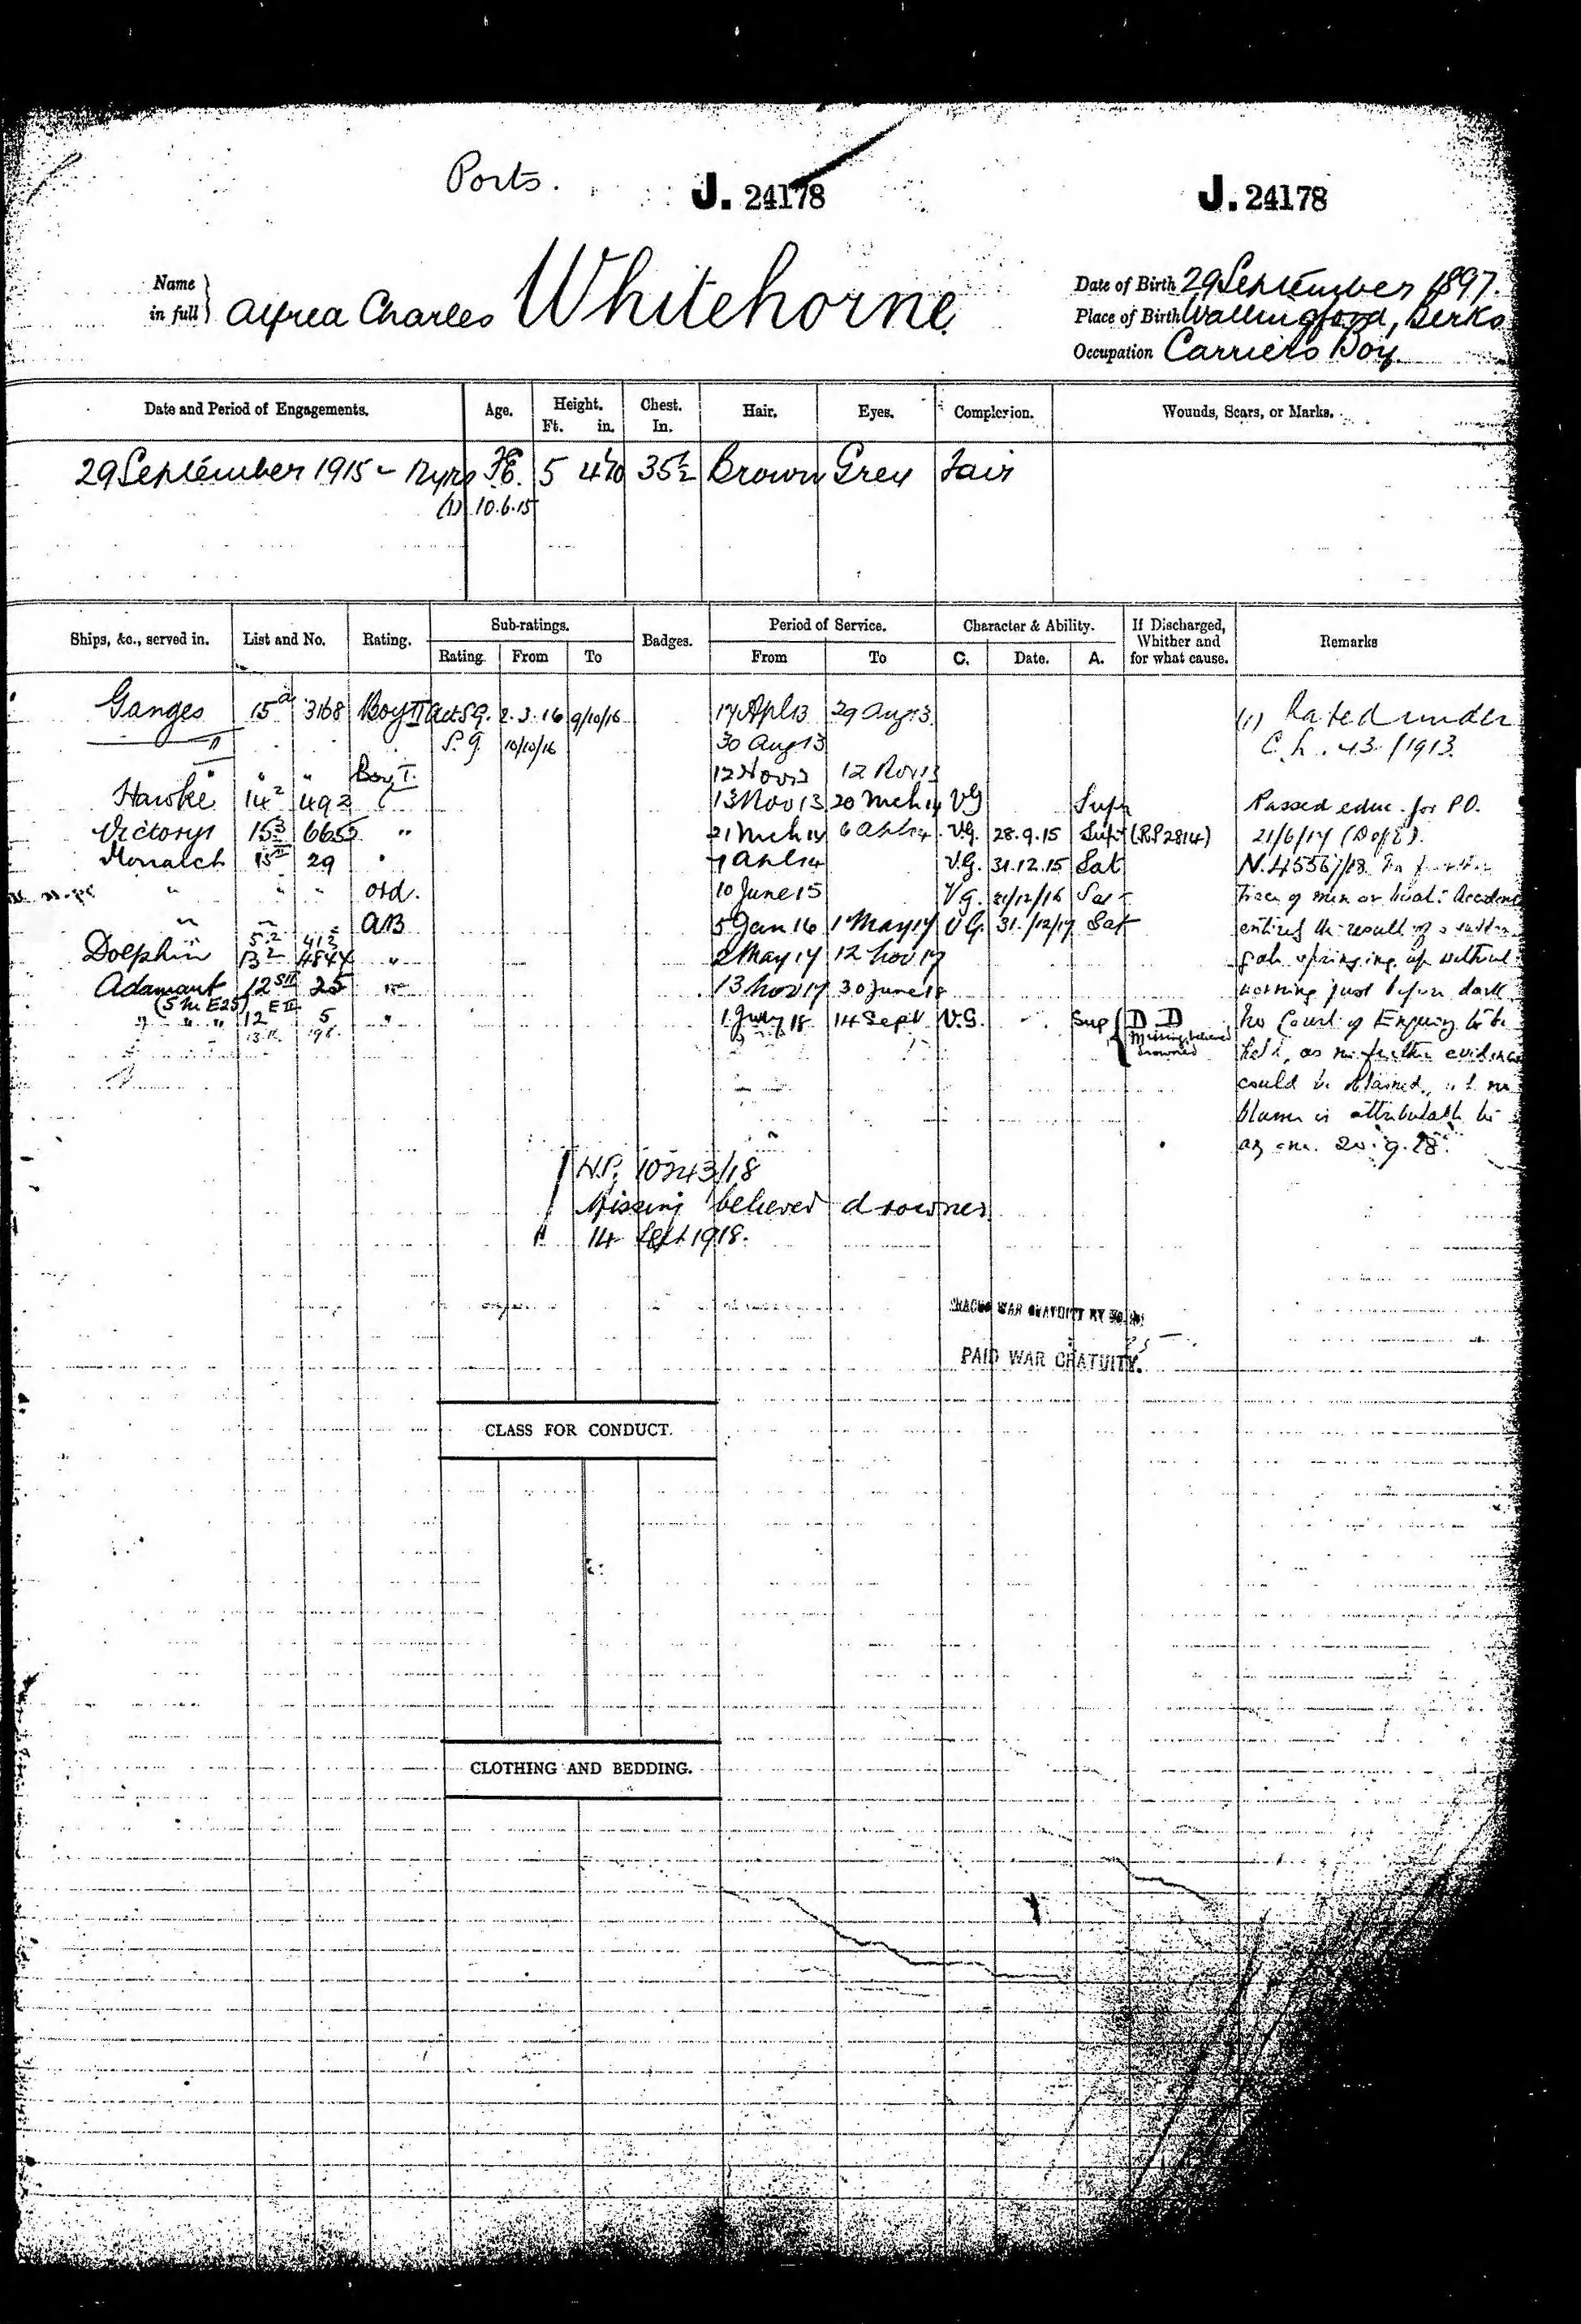 Ports.
J. 24178
J. 24178
Name in full } Alfred Charles Whitehorne
Date of Birth 29 September 1897.
Place of Birth Wallingford, Berks
Occupation Carriers Boy
Date and Period of Engagements. Age. Height. Ft. in. Chest. In. Hair. Eyes. Complexion. Wounds, Scars, or Marks.
29 September 1915 - 12 yrs 5 35½ Brown Grey Fair
(1) 10.6.15
Ships, &c., served in. List and No. Rating. Sub-ratings. Badges. Period of Service. Character & Ability. If Discharged, Whither and for what cause. Remarks
Rating. From To From To C. Date. A.
Ganges 15 a 3168 Boy II Act S.G. 2.3.16 9/10/16 17 Apl 13 29 Aug 13 (1) Rated under
" S.G. 10/10/16 30 Aug 13 C.L. 43/1913.
" " " Boy I. 12 Nov 13 12 Nov 13
Hawke 14 2 492 13 Nov 13 20 Mch 14 VG Supr Passed educ. for P.O.
Victory I 15 3 6655 " 21 Mch 14 6 Apl 14 V.G. 28.9.15 Supr (R.P. 2814) 21/6/17
Monarch 15 II 29 " 7 Apl 14 V.G. 31.12.15 Sat N. 45567/18 No further
" " " Ord. 10 June 15 V.G. 31/12/16 Sat trace of men or boat. Accident
" " " AB 5 Jan 16 1 May 17 V.G. 31/12/17 Sat entirely the result of a sudden
Dolphin 5 2 413 13 2 4844 " 2 May 17 12 Nov 17 gale springing up without
Adamant 12 SII 25 " 13 Nov 17 30 June 18 warning just before dark
(S/M E25)
" " " 12 E II 5 " 1 July 18 14 Sept V.G. Sup { D D No Court of Enquiry to be
Missing believed drowned held, as no further evidence
could be obtained, & no
blame is attributable to
any one. 20.9.18.
N.P. 10243/18
Missing believed drowned
14 Sept 1918.
WAR GRATUITY
PAID WAR GRATUITY.
CLASS FOR CONDUCT.
CLOTHING AND BEDDING.